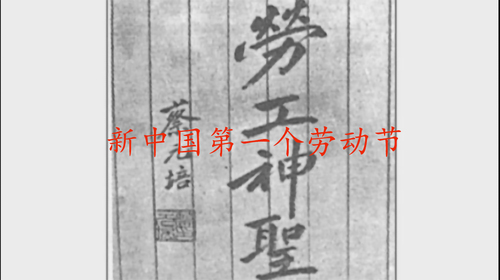 勞工神聖
蔡元培
新中国第一个劳动节